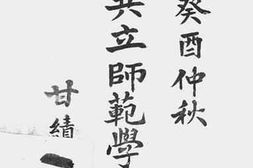 癸酉仲秋
共立師範學
甘績